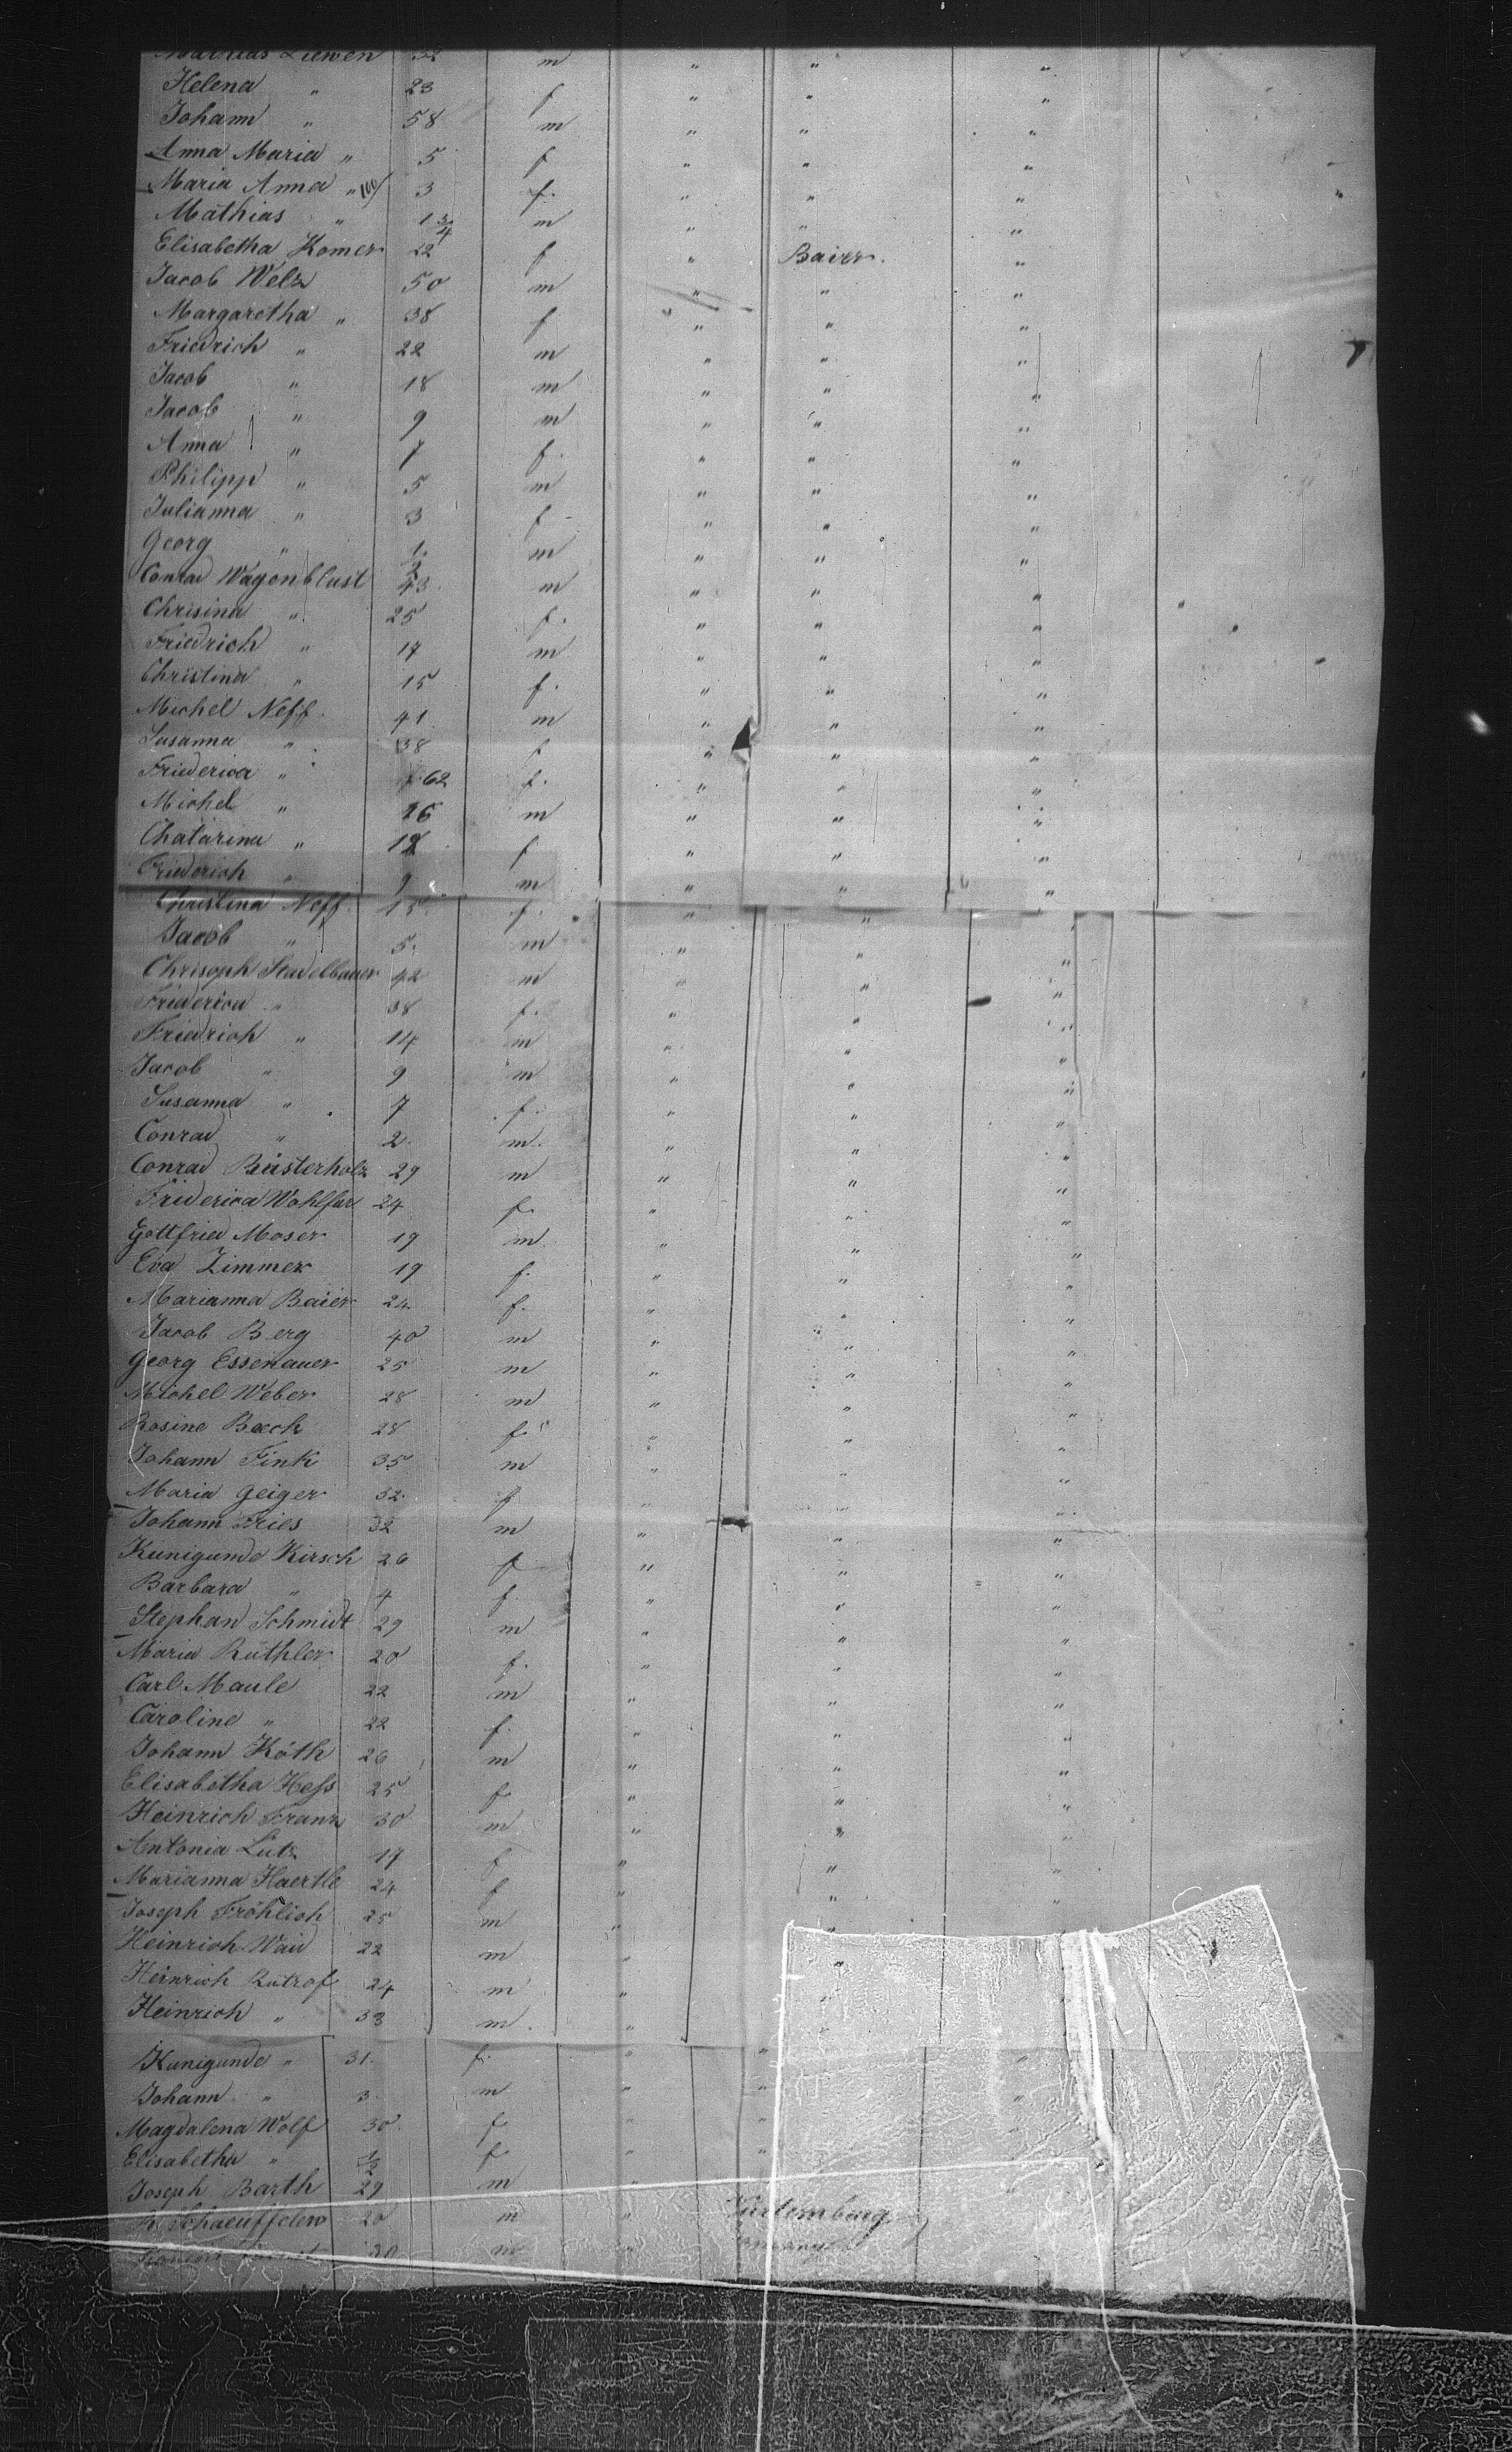 Mathias Liewen 32 m " " "
Helena " 23 f " " "
Johann " 58 m " " "
Anna Maria " 5 f " " "
Maria Anna " 100/ 3 f. " " "
Mathias " 1 3/4 m " " "
Elisabetha Komer 22 f " Baier. "
Jacob Welz 50 m " " "
Margaretha " 38 f " " "
Friedrich " 22 m " " "
Jacob " 18 m " " "
Jacob " 9 m " " "
Anna " 7 f. " " "
Philipp " 5 m " " "
Julianna " 3 f " " "
Georg " 1/2 m " " "
Conrad Wagenblast 43 m " " "
Chrisina " 25 f. " " "
Friedrich " 17 m " " "
Christina " 15 f. " " "
Michel Neff. 41 m " " "
Susanna " 38 f " " "
Friederica " 62 f. " " "
Michel " 16 m " " "
Chatarina " 12 f " " "
Friederich " 9 m " " "
Christina Neff 15 f. " " "
Jacob " 5. m " " "
Chrisoph Stadelbauer 42 m " " "
Friederica " 38 f. " " "
Friedrich " 14 m " " "
Jacob " 9 m " " "
Susanna " 7 f. " " "
Conrad " 2. m. " " "
Conrad Büsterholz 29 m " " "
Friderica Wohlfar 24 f. " " "
Gottfried Moser 19 m. " " "
Eva Zimmer 19 f. " " "
Marianna Baier 24 f. " " "
Jacob Berg 40 m " " "
Georg Essenauer 25 m " " "
Michel Weber 28 m " " "
Rosine Beck 28 f. " " "
Johann Fink 35 m " " "
Maria Geiger 32. f " " "
Johann Fries 32 m " " "
Kunigunde Kirsch 26 f " " "
Barbara " 4 f. " " "
Stephan Schmidt 29 m " " "
Maria Ruthler 20 f. " " "
Carl Maule 22 m " " "
Caroline " 22 f. " " "
Johann Köth 26 m " " "
Elisabetha Hess 25 f " " "
Heinrich Franz 30 m " " "
Antonia Lutz 17 f " " "
Marianna Haertle 24 f " " "
Joseph Fröhlich 25 m " "
Heinrich Waid 22 m " "
Heinrich Rutrof 24 m " "
Heinrich " 33 m. "
Kunigunde " 31. f. " " "
Johann " 3 m " " "
Magdalena Wolf 30. f " "
Elisabetha " 1/2 f " "
Joseph Barth 29 m "
Schaeuffelen 20 m " Würtemburg
30 m "